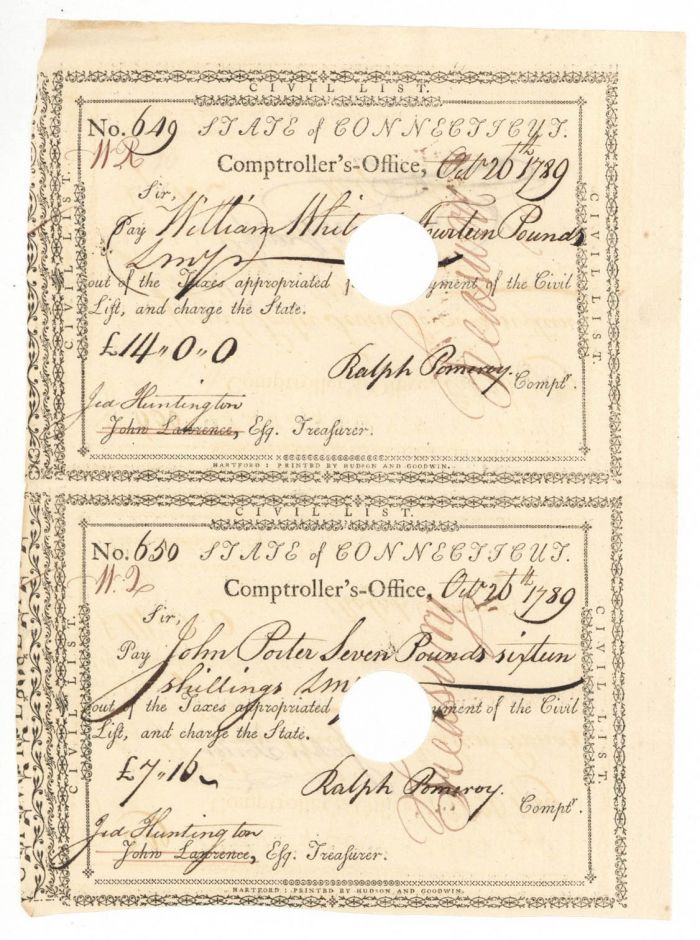 CIVIL LIST.
No. 649 STATE of CONNECTICUT.
W R
Comptroller's-Office, Octr 26th 1789
Sir,
Pay William Whit Fourteen Pounds
Lmy
out of the Taxes appropriated yment of the Civil
List, and charge the State.
£14"0"0
Ralph Pomeroy. Comptr.
Jed Huntington
John Lawrence, Esq. Treasurer.
HARTFORD: PRINTED BY HUDSON AND GOODWIN.
CIVIL LIST.
CIVIL LIST.
Treasury
CIVIL LIST.
No. 650 STATE of CONNECTICUT.
Comptroller's-Office, Octr 26th 1789
Sir,
Pay John Porter Seven Pounds sixteen
shillings Lmy
out of the Taxes appropriated yment of the Civil
List, and charge the State.
£7"16
Ralph Pomeroy. Comptr.
Jed Huntington
John Lawrence, Esq. Treasurer.
HARTFORD: PRINTED BY HUDSON AND GOODWIN.
CIVIL LIST.
CIVIL LIST.
Treasury